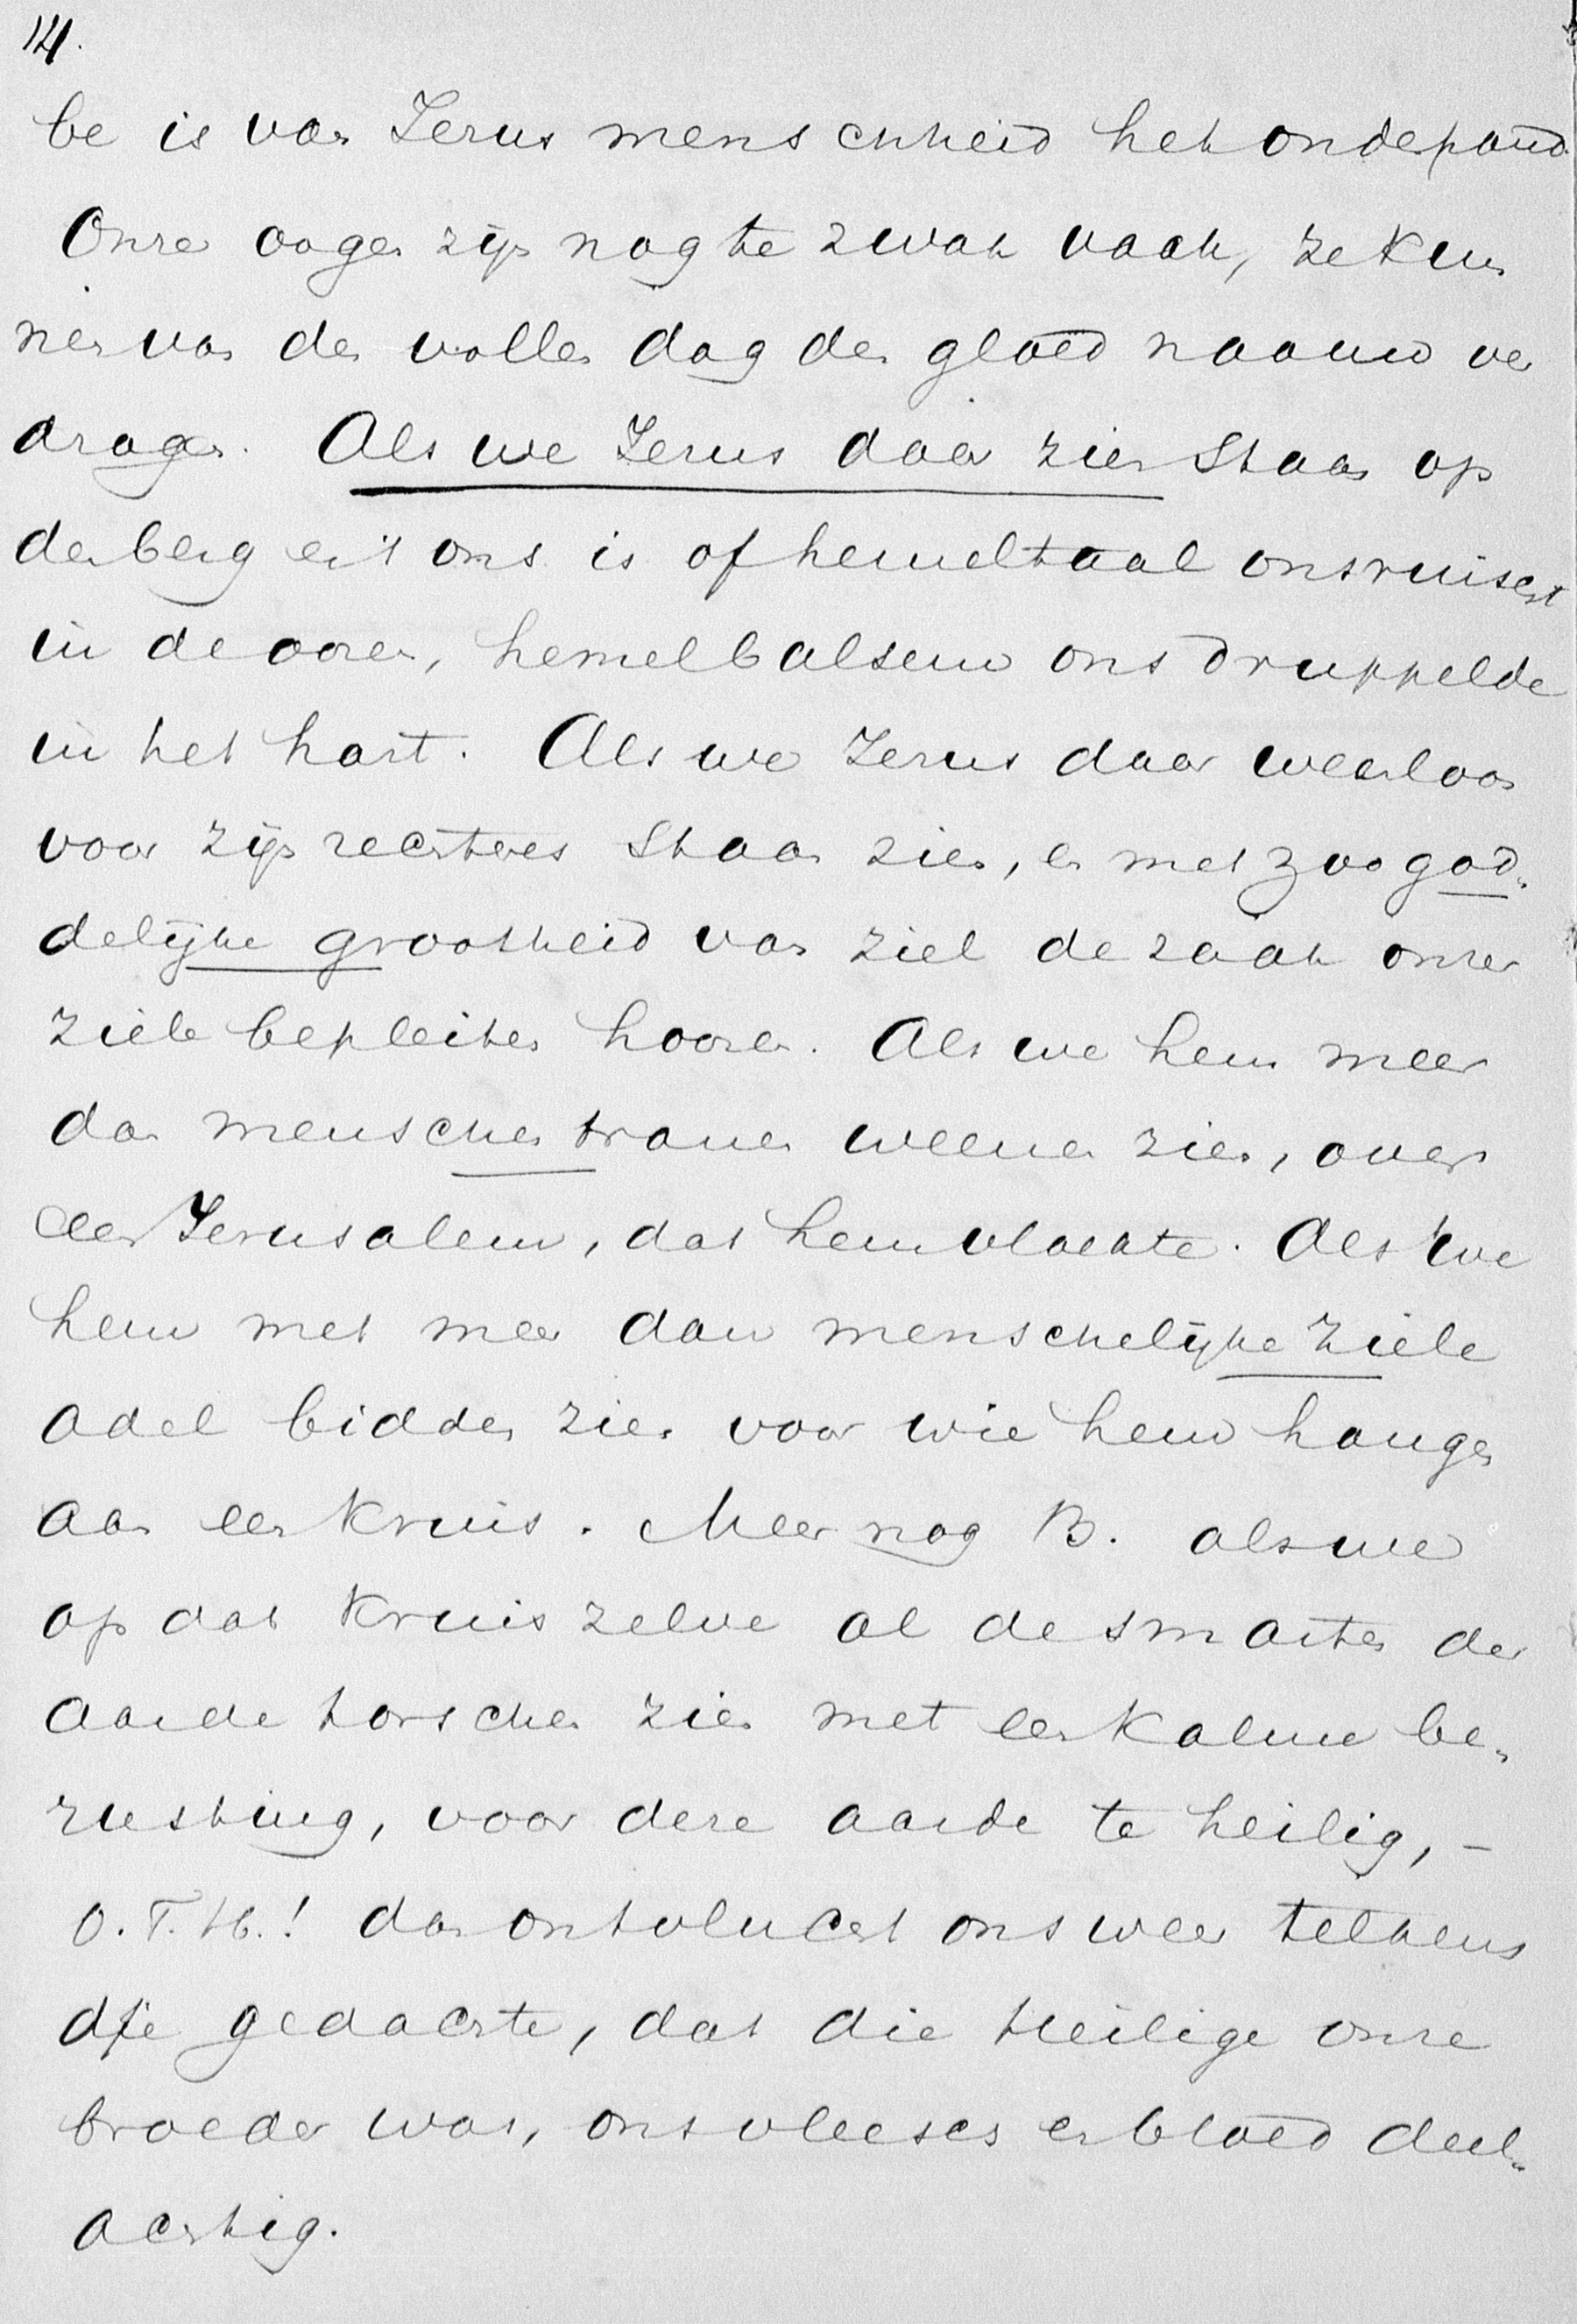 14.
be is van Jezus menschheid het onderpand.
Onze oogen zijn nog te zwak vaak, ze kun
nen van den vollen dag den gloed naauw ver
dragen. Als we Jezus daar zien staan op
den berg en 't ons is of hemeltaal ons ruischt
in de ooren, hemelbalsem ons druppelde
in het hart. Als we Jezus daar weerloos
voor zijn rechters staan zien, en met zoo god-
delijke grootheid van ziel de zaak onzer
ziele bepleiten hooren. Als we hem meer
dan menschen tranen weenen zien, over
een Jerusalem, dat hem vloekte. Als we
hem met meer dan menschelijke ziele
adel bidden zien voor wie hem hangen
aan een kruis. Meer nog B. als we
op dat kruis zelve al de smarten der
aarde torschen zien met een kalme be-
rusting, voor deze aarde te heilig, -
O. T. H.! dan ontvlucht ons weer telkens
die gedachte, dat die heilige onze
broeder was, ons vleesch en bloed deel-
achtig.